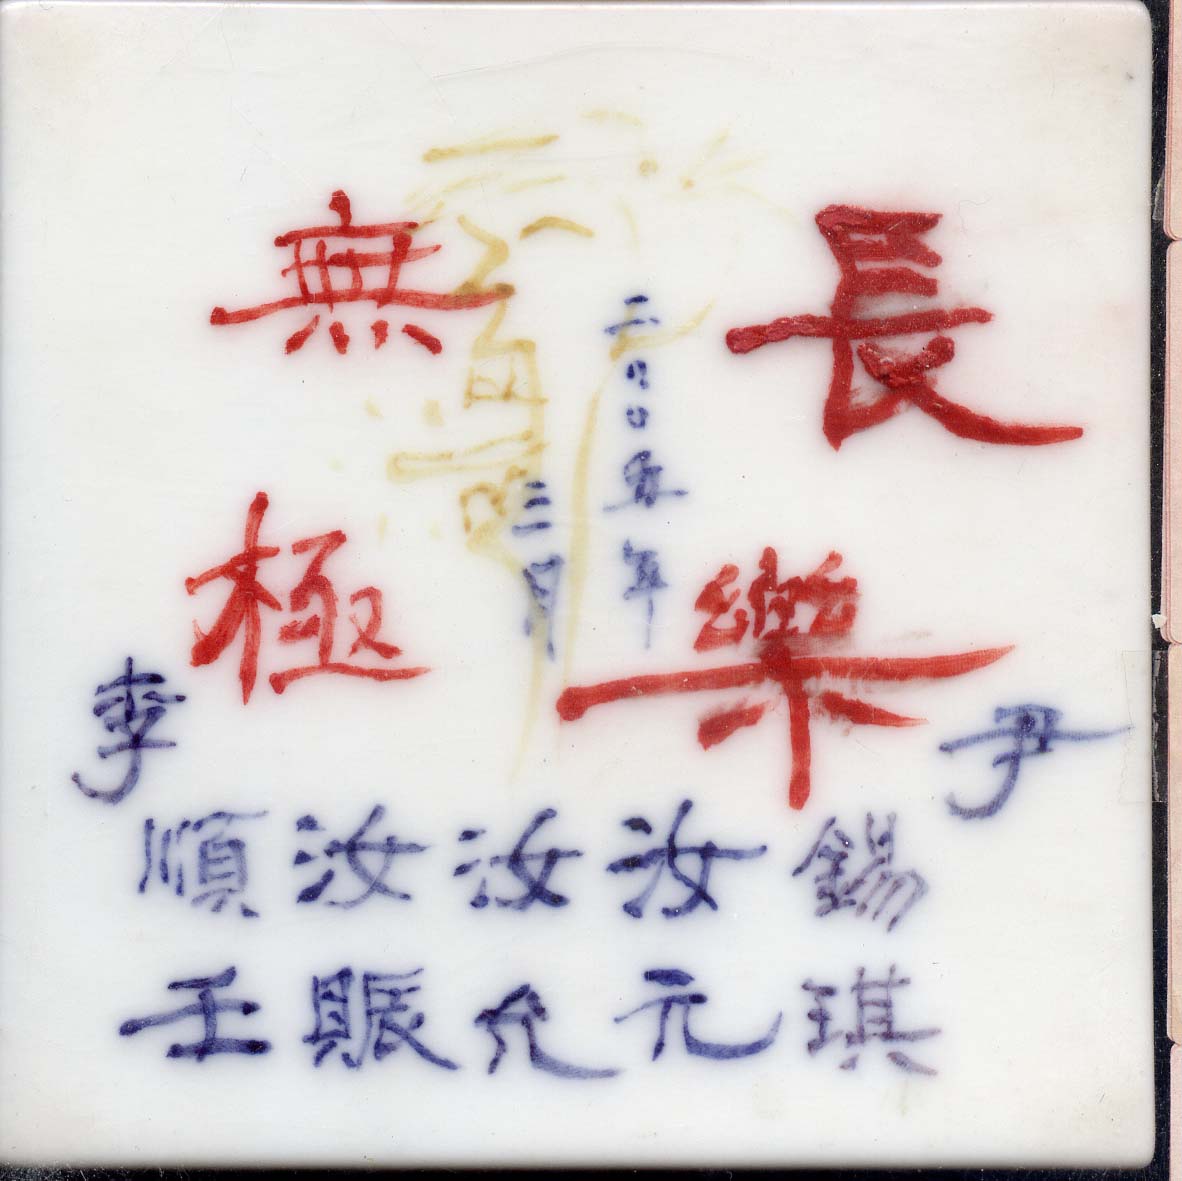 長樂
無極
二〇〇五年
三月
尹錫琪
汝元
汝允
汝賑
李順壬